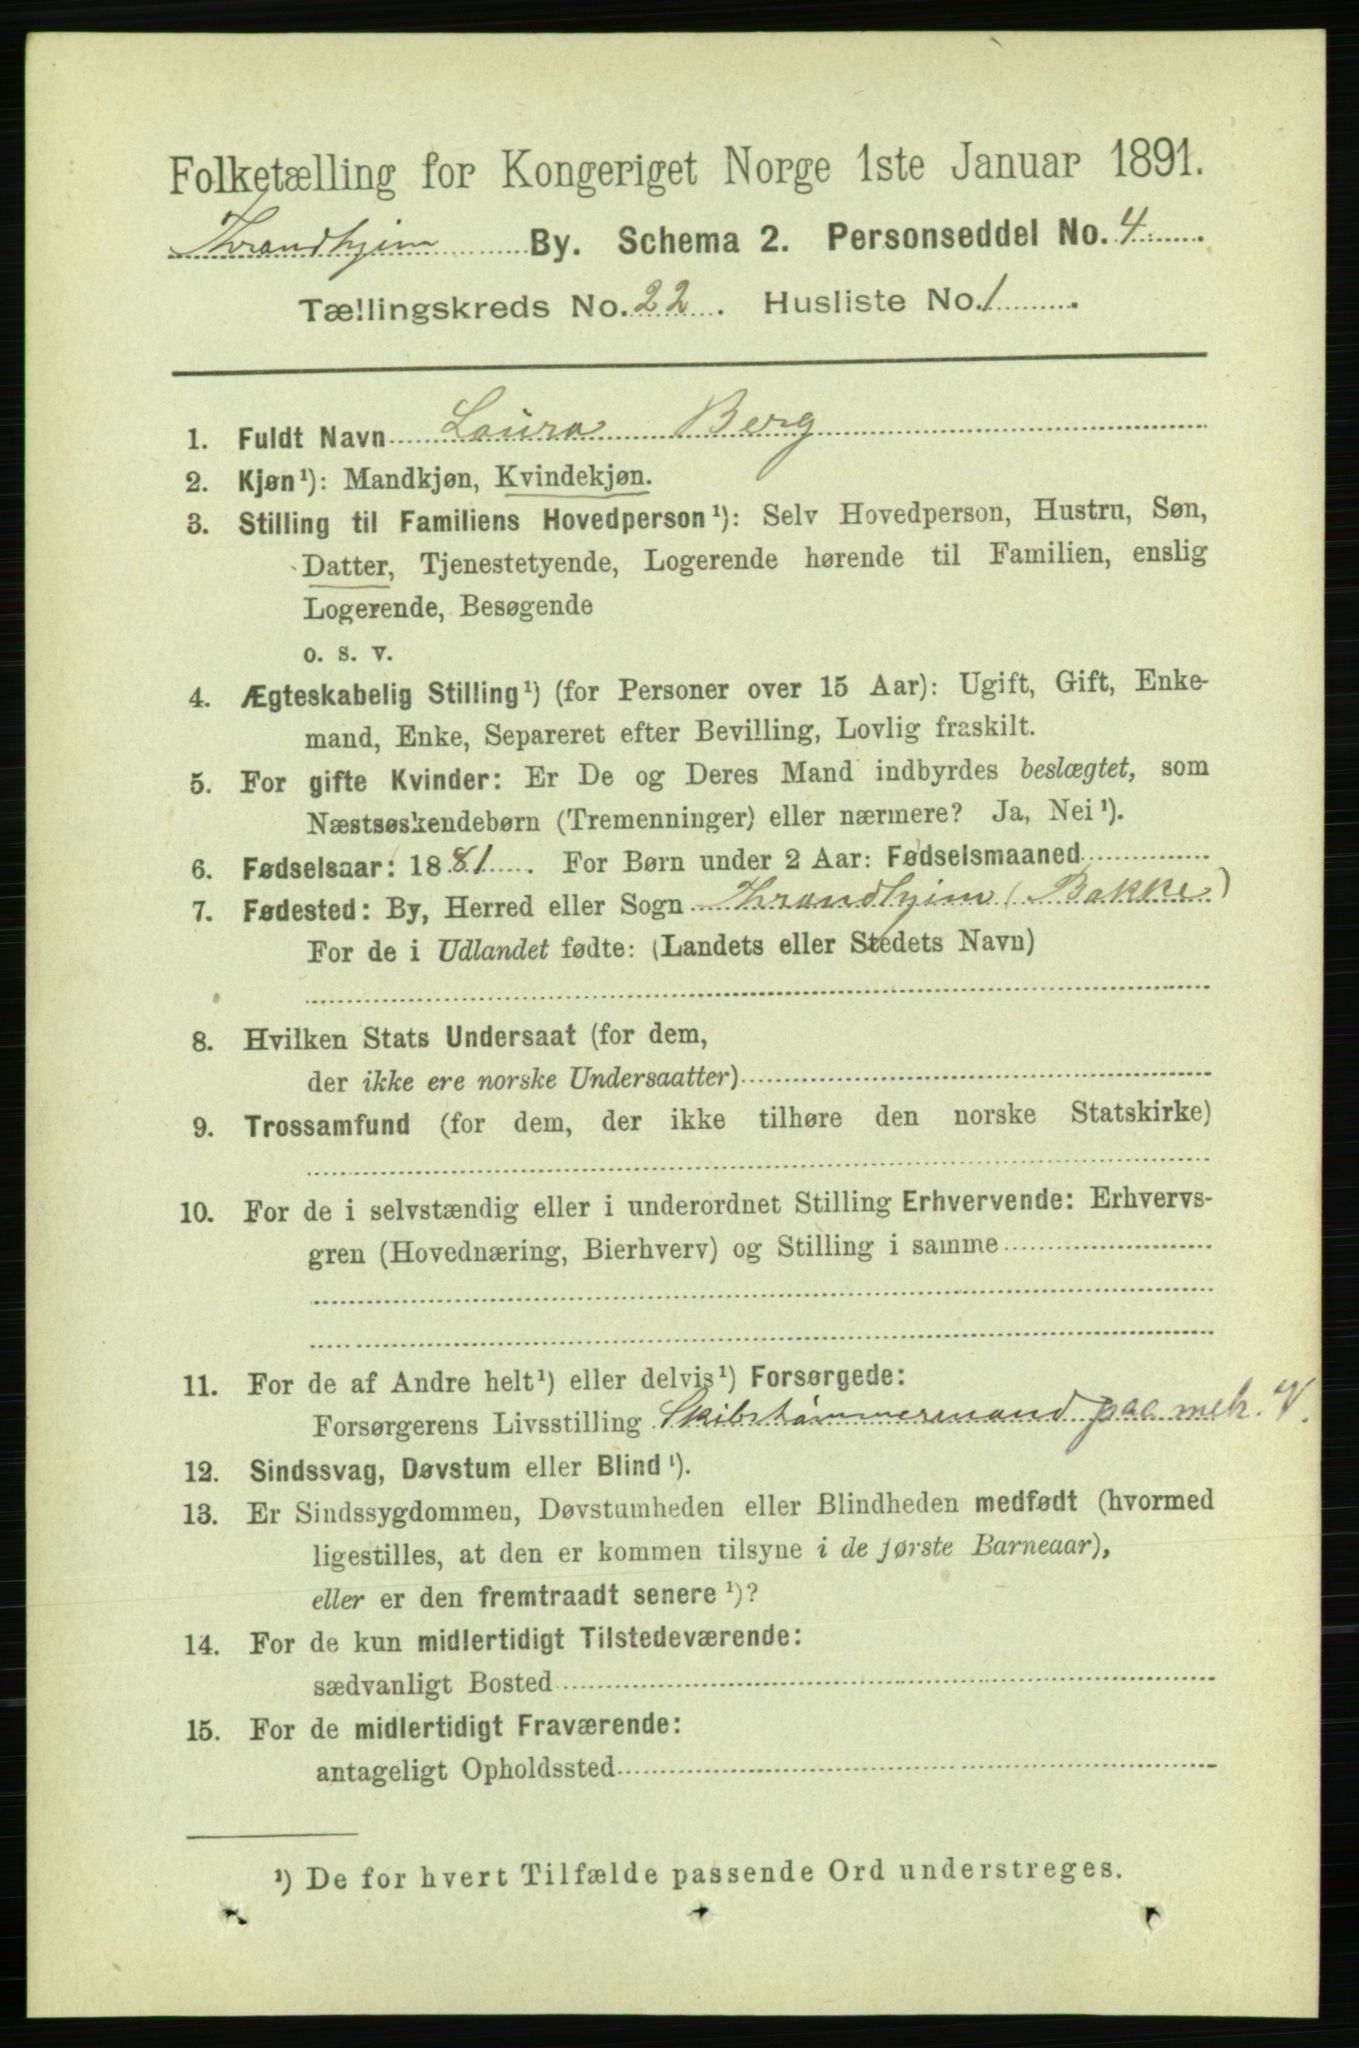 Folketælling for Kongeriget Norge 1ste Januar 1891.
Throndhjem By. Schema 2. Personseddel No. 4
Tællingskreds No. 22. Husliste No. 1.
1. Fuldt Navn Laura Berg
2. Kjøn¹): Mandkjøn, Kvindekjøn.
3. Stilling til Familiens Hovedperson¹): Selv Hovedperson, Hustru, Søn,
Datter, Tjenestetyende, Logerende hørende til Familien, enslig
Logerende, Besøgende
o. s. v.
4. Ægteskabelig Stilling¹) (for Personer over 15 Aar): Ugift, Gift, Enke-
mand, Enke, Separeret efter Bevilling, Lovlig fraskilt.
5. For gifte Kvinder: Er De og Deres Mand indbyrdes beslægtet, som
Næstsøskendebørn (Tremenninger) eller nærmere? Ja, Nei¹).
6. Fødselsaar: 1881. For Børn under 2 Aar: Fødselsmaaned
7. Fødested: By, Herred eller Sogn Throndhjem (Bakke)
For de i Udlandet fødte: (Landets eller Stedets Navn)
8. Hvilken Stats Undersaat (for dem,
der ikke ere norske Undersaatter)
9. Trossamfund (for dem, der ikke tilhøre den norske Statskirke)
10. For de i selvstændig eller i underordnet Stilling Erhvervende: Erhvervs-
gren (Hovednæring, Bierhverv) og Stilling i samme
11. For de af Andre helt¹) eller delvis¹) Forsørgede:
Forsørgerens Livsstilling Skibstømmermand paa meh. V.
12. Sindssvag, Døvstum eller Blind¹).
13. Er Sindssygdommen, Døvstumheden eller Blindheden medfødt (hvormed
ligestilles, at den er kommen tilsyne i de første Barneaar),
eller er den fremtraadt senere¹)?
14. For de kun midlertidigt Tilstedeværende:
sædvanligt Bosted
15. For de midlertidigt Fraværende:
antageligt Opholdssted
¹) De for hvert Tilfælde passende Ord understreges.